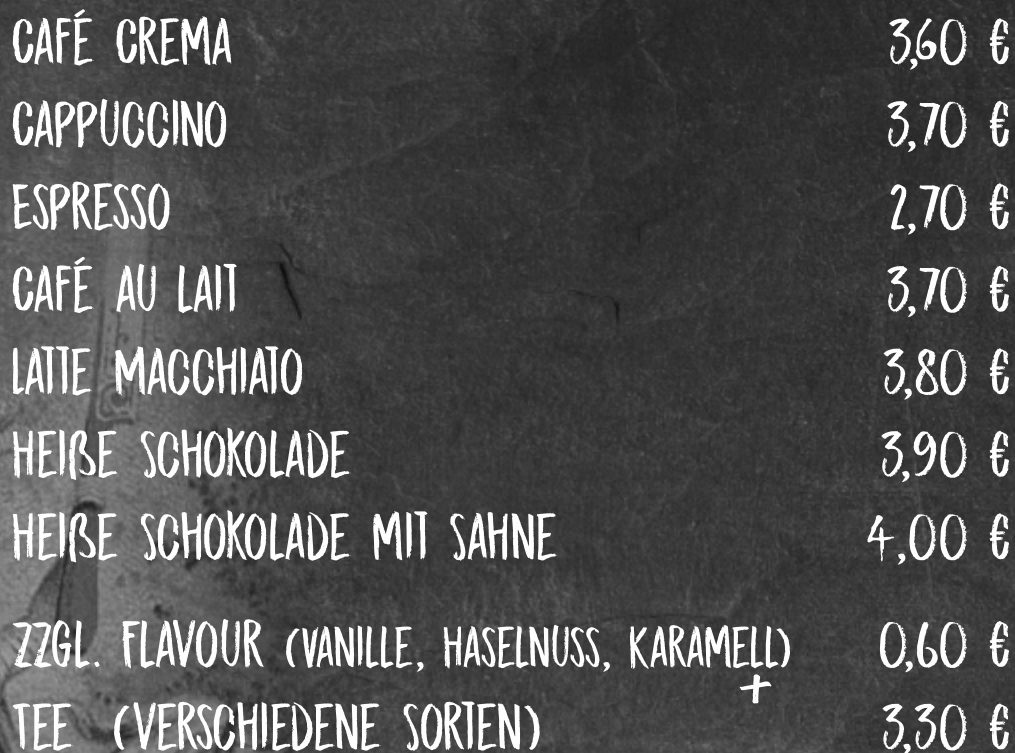 CAFÉ CREMA 3,60 €
CAPPUCCINO 3,70 €
ESPRESSO 2,70 €
CAFÉ AU LAIT 3,70 €
LATTE MACCHIATO 3,80 €
HEIßE SCHOKOLADE 3,90 €
HEIßE SCHOKOLADE MIT SAHNE 4,00 €
ZZGL. FLAVOUR (VANILLE, HASELNUSS, KARAMELL) 0,60 €
+
TEE (VERSCHIEDENE SORTEN) 3,30 €